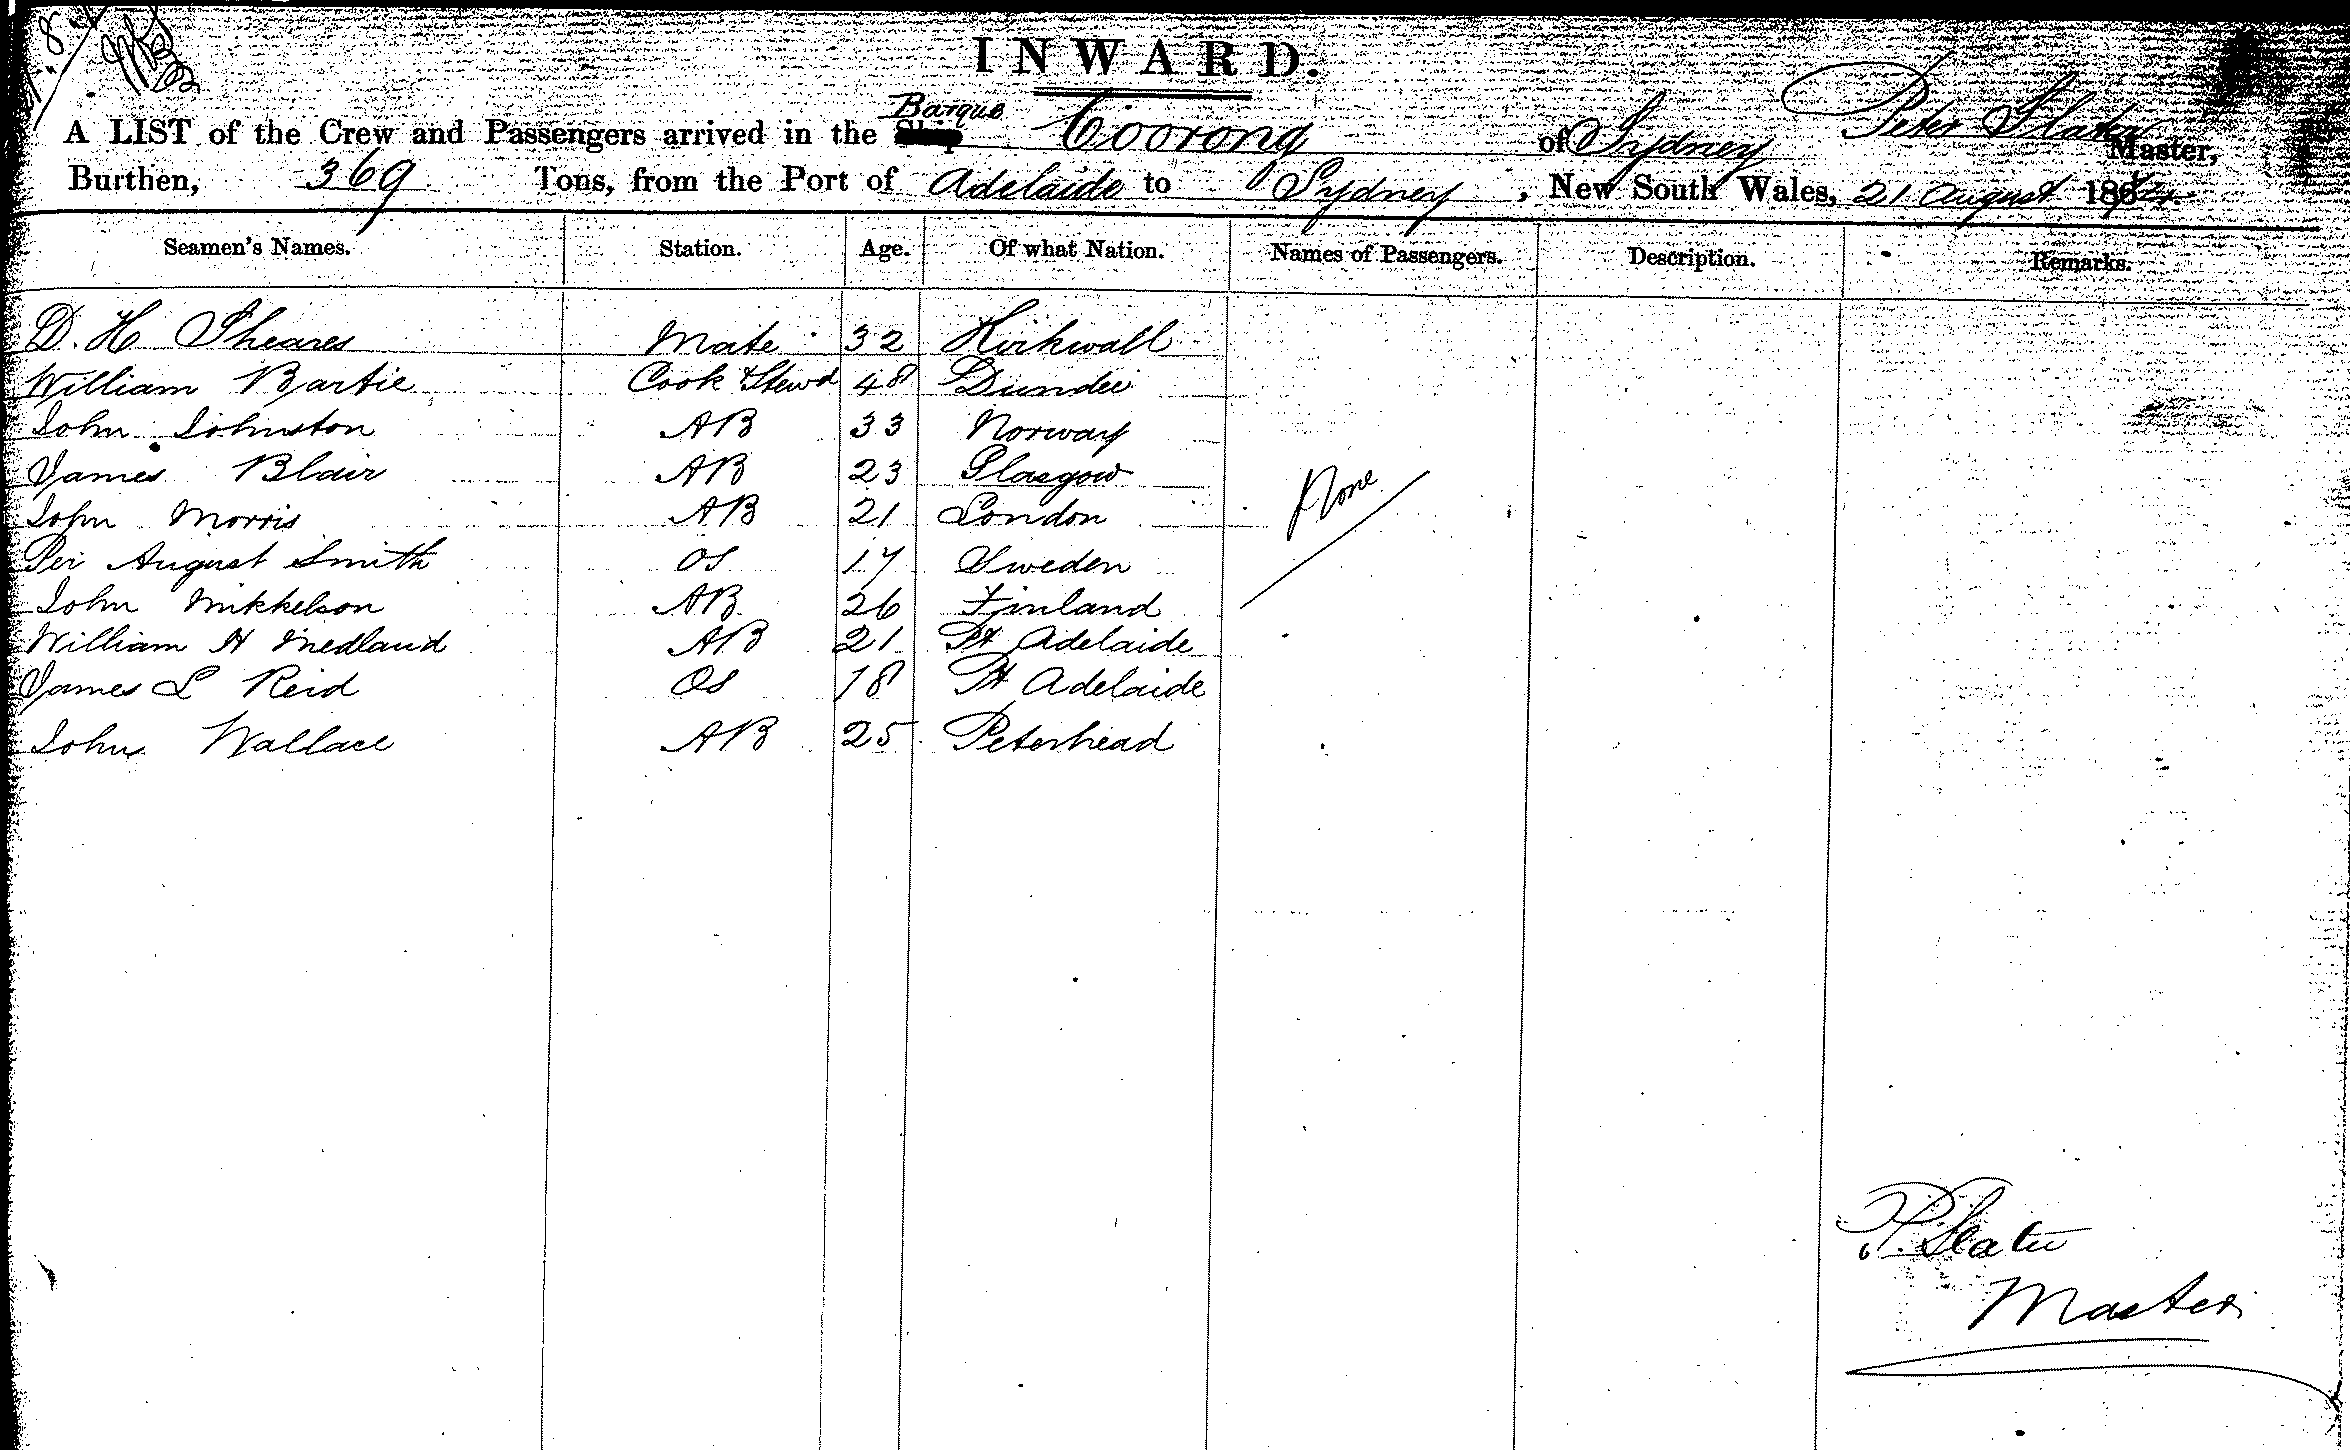 INWARD.
Barque
A LIST of the Crew and Passengers arrived in the Ship Coorong of Sydney Peter Slater Master,
Burthen, 369 Tons, from the Port of Adelaide to Sydney, New South Wales, 21 August 18
Seamen's Names. Station. Age. Of what Nation. Names of Passengers. Description. Remarks.
D. H Sheares Mate 32 Kirkwall
William Bartie Cook & Stewd 48 Dundee
John Johnston AB 33 Norway
James Blair AB 23 Glasgow
None
John Morris AB 21 London
Per August Smith OS 17 Sweden
John Mikkelson AB 26 Finland
William H Medland AB 21 Pt Adelaide
James L Reid OS 18 Pt Adelaide
John Wallace AB 25 Peterhead
P. Slater
Master